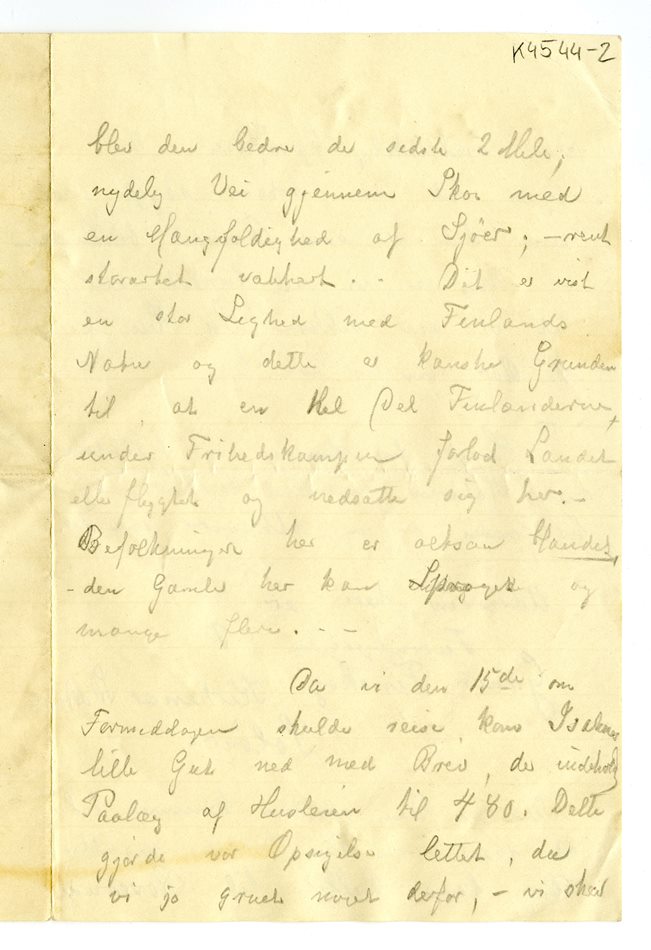 K4544-2
blev den bedre de sidste 2 Mile,
nydelig Vei gjennem Skov med
en Mangfoldighed af Sjöer, – rent
storartet vakkert. – Dit er vist
en stor Lighed med Finlands
Natur og dette er kanske Grunden
til, at en Hel Del Finlænderne,
under Frihedskampen forlod Landet
eller flygtet og nedsatte sig her. –
Befolkningen her er altsaa
– den Gamle her kan Sproget og
mange flere. – –
Da vi den 15de om
Formiddagen skulde reise, kom
lille Gut ned med Brev, der indeholdt
Paalæg af Husleien til 480. Dette
gjorde vor Opsigelse lettet, da
vi jo gruet noget derfor, – vi skal